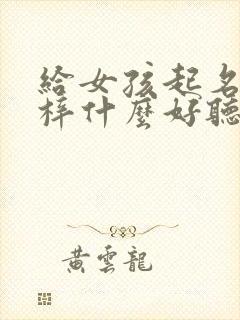 給女孩起名
梓什麼好聽
黃雲龍